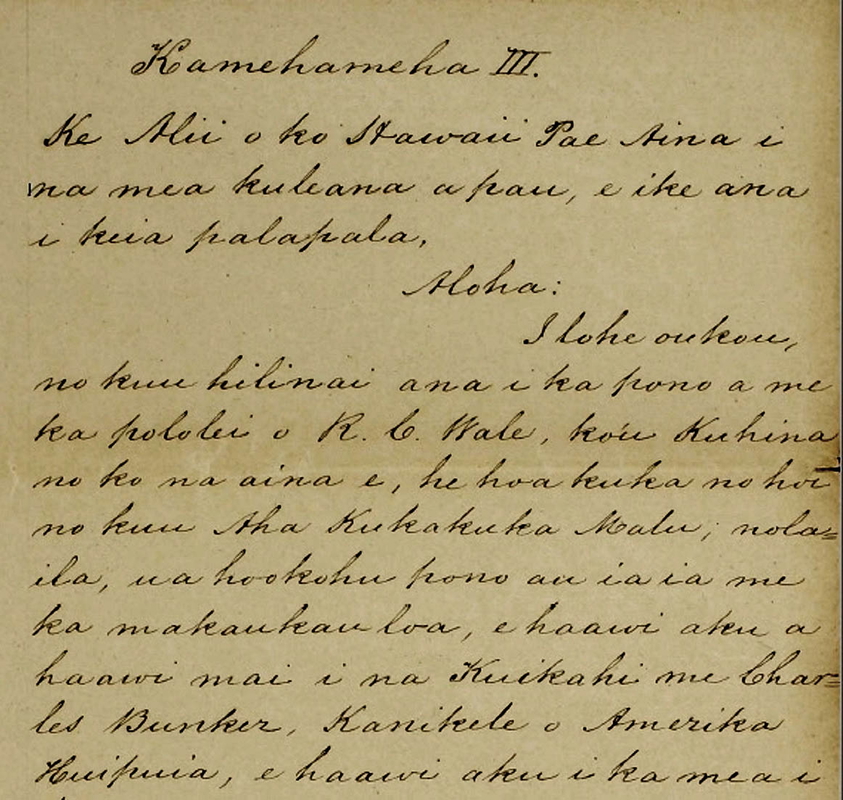 Kamehameha III.
Ke Alii o ko Hawaii Pae Aina i
na mea kuleana a pau, e ike ana
i keia palapala,
Aloha:
I lohe oukou,
no kuu hilinai ana i ka pono a me
ka pololei o R. C. Wale, ko'u Kuhina
no ko na aina e, he hoa kuka no hoi
no kuu Aha Kukakuka Malu; nola=
ila, ua hookohu pono au ia ia me
ka makaukau loa, e haawi aku a
haawi mai i na Kuikahi me Char=
les Bunker, Kanikele o Amerika
Huipuia, e haawi aku i ka mea i